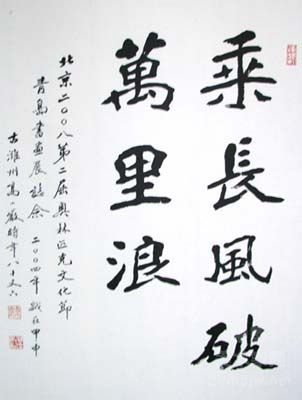 乘長風破
萬里浪
北京二〇〇八第二屆奧林匹克文化節
青島書畫展誌念 二〇〇四年歲在甲申
古濰州高一嚴時年八十又六